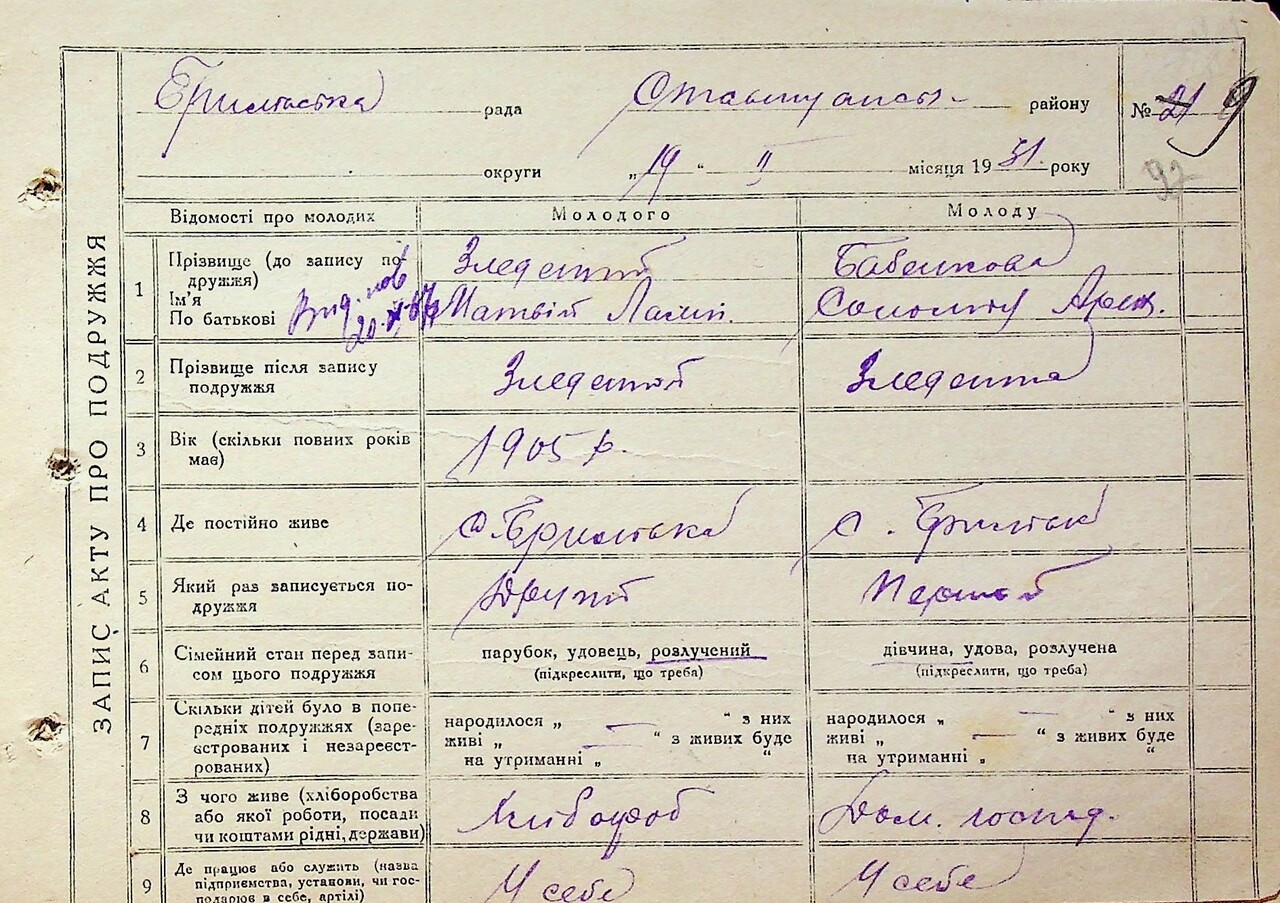 рада району № 21 9
округи „19“ II місяця 1931 року
92
ЗАПИС АКТУ ПРО ПОДРУЖЖЯ
Відомості про молодих Молодого Молоду
1 Прізвище (до запису по-
дружжя)
Ім'я
По батькові
Матвій
Бабенкова
2 Прізвище після запису
подружжя
3 Вік (скільки повних років
має) 1905 р.
4 Де постійно живе с. с.
5 Який раз записується по-
дружжя Другий Перший
6 Сімейний стан перед запи-
сом цього подружжя
парубок, удовець, розлучений
(підкреслити, що треба)
дівчина, удова, розлучена
(підкреслити, що треба)
7 Скільки дітей було в попе-
редніх подружжях (заре-
єстрованих і незареєст-
рованих)
народилося „ — “ з них
живі „ — “ з живих буде
на утриманні „ “
народилося „ — “ з них
живі „ — “ з живих буде
на утриманні „ “
8 З чого живе (хліборобства
або якої роботи, посади
чи коштами рідні, держави)
Хлібороб
Дом. господ.
9 Де працює або служить (назва
підприємства, установи, чи гос-
подарює в себе, артілі)
У себе
У себе